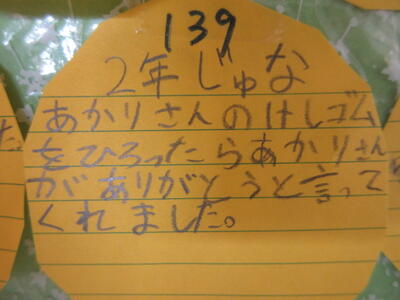 139
2年じゅな
あかりさんのけしゴム
をひろったらあかりさん
がありがとうと言って
くれました。